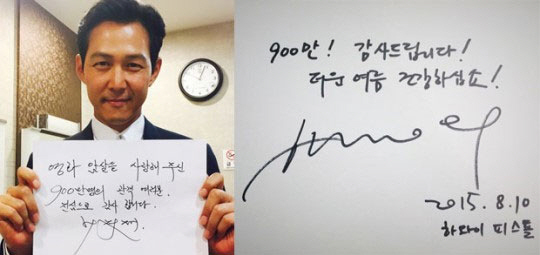 영화 암살을 사랑해 주신
900만명의 관객 여러분.
진심으로 감사 합니다.
900만! 감사드립니다!
더운 여름 건강하십쇼!
2015. 8. 10
하와이 피스톨